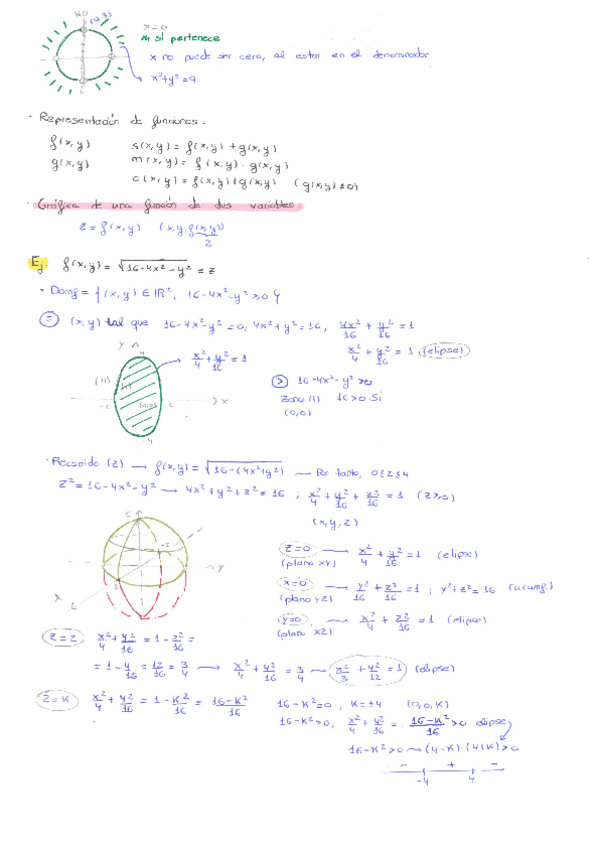 (0,3)
x=0
si pertenece
x no puede ser cero, al estar en el denominador
x²+y²=9
· Representación de funciones:
f(x,y)    s(x,y) = f(x,y) + g(x,y)
g(x,y)    m(x,y) = f(x,y) · g(x,y)
c(x,y) = f(x,y)/g(x,y)    (g(x,y)≠0)
· Gráfica de una función de dos variables
z = f(x,y)    (x,y,f(x,y))
z
Ej.    f(x,y) = √(16-4x²-y²) = z
· Domf = {(x,y) ∈ ℝ², 16-4x²-y² ≥ 0}
(=) (x,y) tal que 16-4x²-y²=0, 4x²+y²=16, 4x²/16 + y²/16 = 1
x²/4 + y²/16 = 1 (elipse)
y
4
x²/4 + y²/16 = 1
(>) 16-4x²-y²>0
(II)    (I)
-2    (0,0)    2    x
Zona (I)    16>0 Si
(0,0)
-4
· Recorrido (z) → f(x,y) = √(16-(4x²+y²)) → Por tanto, 0≤z≤4
z² = 16-4x²-y² → 4x²+y²+z²=16 ; x²/4 + y²/16 + z²/16 = 1 (z≥0)
(x,y,z)
z
y
x
z=0 → x²/4 + y²/16 = 1 (elipse)
(plano xy)
x=0 → y²/16 + z²/16 = 1 ; y²+z²=16
(plano yz)
y=0 → x²/4 + z²/16 = 1 (elipse)
(plano xz)
z=2    x²/4 + y²/16 = 1 - z²/16 =
= 1 - 4/16 = 12/16 = 3/4 → x²/4 + y²/16 = 3/4 → x²/3 + y²/12 = 1 (elipse)
z=K    x²/4 + y²/16 = 1 - K²/16 = 16-K²/16    16-K²=0, K=±4    (0,0,K)
16-K²>0, x²/4 + y²/16 = 16-K²/16 > 0 elipse
16-K²>0 → (4-K)·(4+K)>0
-    +    -
-4    4